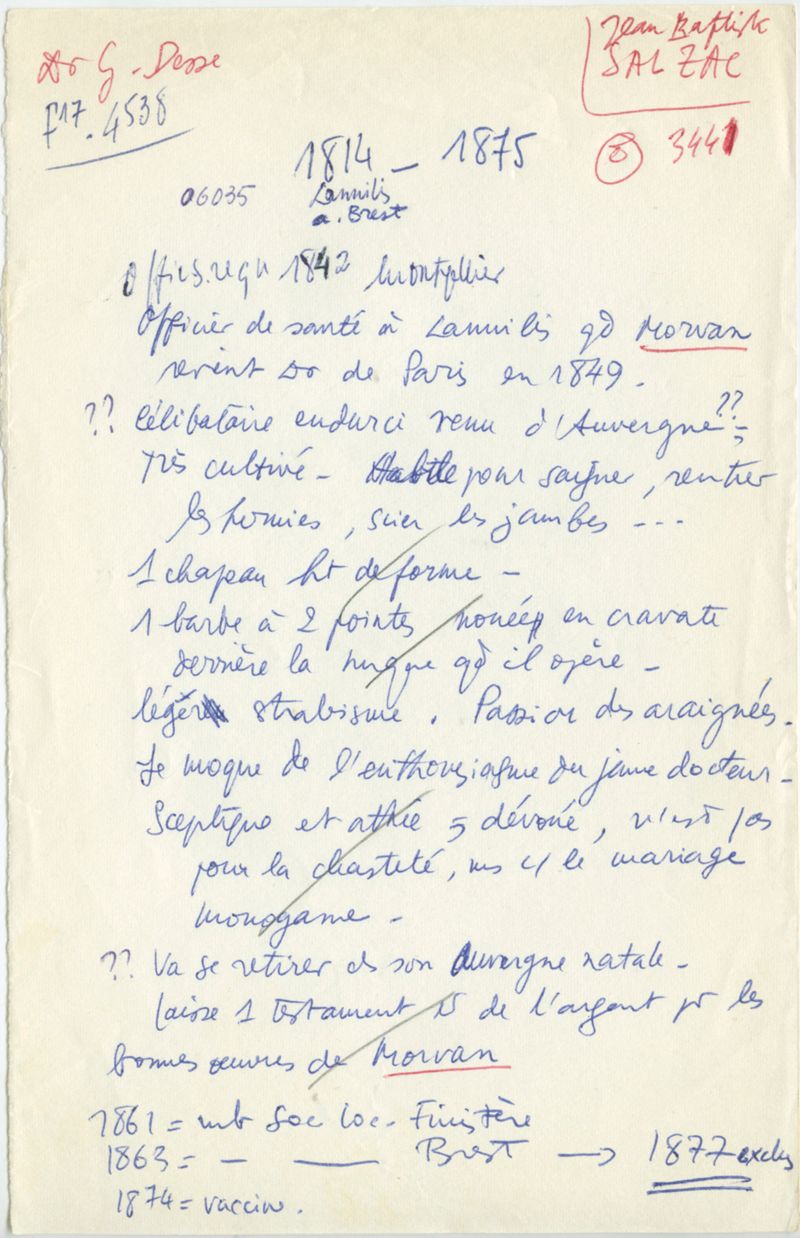 Dr G. Desse
F17. 4538
Jean Baptiste
SALZAC
8 3441
1814 - 1875
06035 Lannilis
a. Brest
Offic.s. reçu 1842 Montpellier
Officier de santé à Lannilis qd Morvan
revint Dr de Paris en 1849.
?? Célibataire endurci venu d'Auvergne ??
Très cultivé - Habile pour saigner, rentrer
les hernies, scier les jambes ---
1 chapeau ht de forme -
1 barbe à 2 pointes nouée en cravate
derrière la nuque qd il opère -
léger strabisme. Passion des araignées.
Se moque de l'enthousiasme du jeune docteur -
Sceptique et athée = dévoué, n'est pas
pour la chasteté, ms c/ le mariage
monogame -
?? Va se retirer ds son Auvergne natale -
laisse 1 testament de l'argent pr les
bonnes œuvres de Morvan
1861 = mb Soc loc. Finistère
1863 = - — Brest → 1877 exclu
1874 = vaccin.